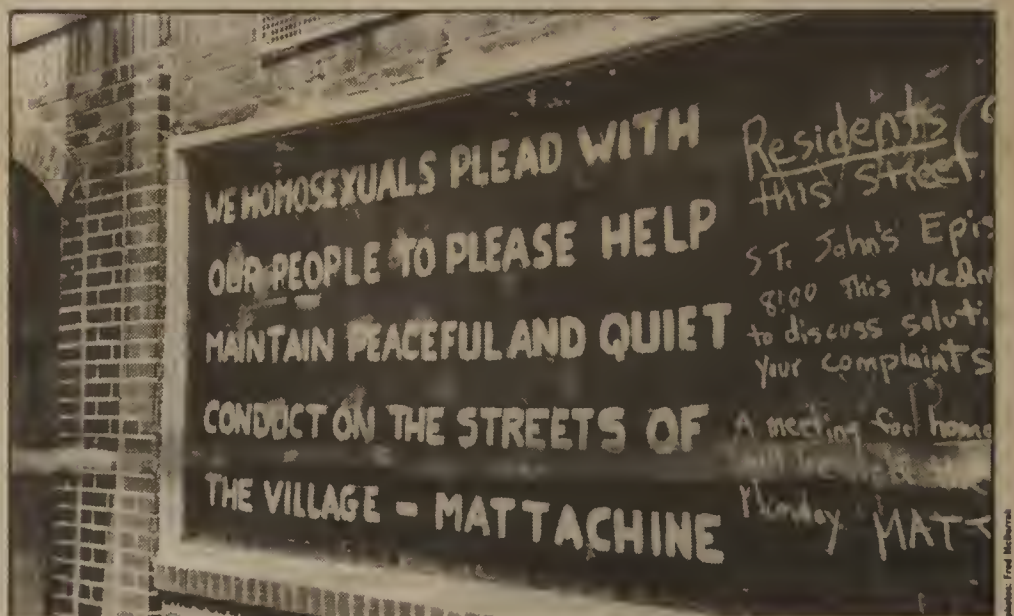 WE HOMOSEXUALS PLEAD WITH
OUR PEOPLE TO PLEASE HELP
MAINTAIN PEACEFUL AND QUIET
CONDUCT ON THE STREETS OF
THE VILLAGE – MATTACHINE
Residents
this street.
ST. John's Epis
8:00 This Wedn
to discuss soluti
your complaints
A meeting for home
Monday. MATT
Photos: Fred McDarrah